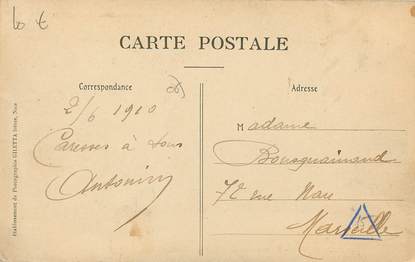 10 €
CARTE POSTALE
Correspondance
2/6 1910
Caresses à tous
Antonin
Adresse
Madame
72 rue
Marseille
Etablissement de Photographies GILETTA frères, Nice